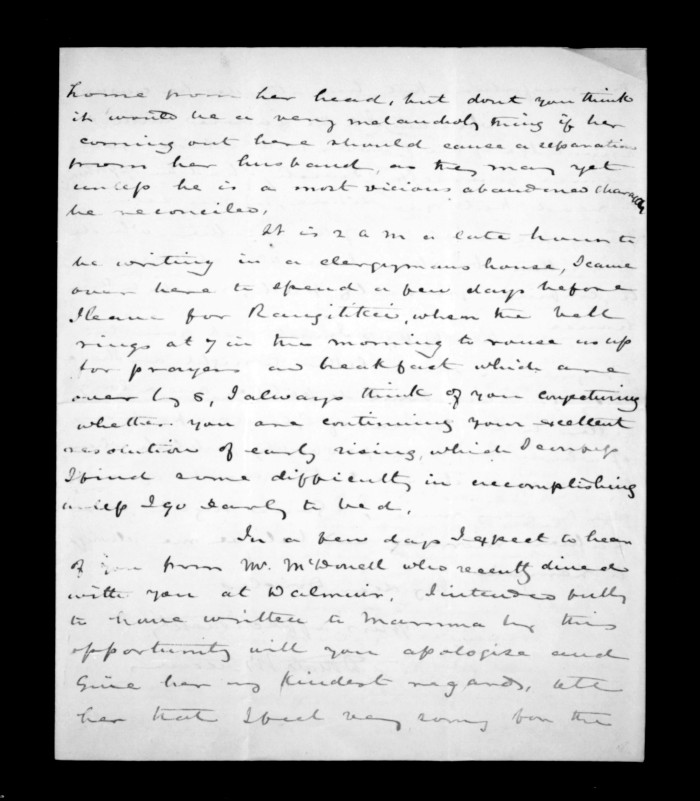 home from her head, but dont you think
it would be a very melancholy thing if her
coming out here should cause a separation
from her husband, as they may yet
unless he is a most vicious abandoned character
be reconciled,
It is 2 am a late hour to
be writing in a clergymans house, I came
over here to spend a few days before
I leave for Rangitikei, when the bell
rings at 7 in the morning to rouse us up
for prayers and breakfast which are
over by 8, I always think of you conjecturing
whether you are continuing your excellent
resolution of early rising, which I
I find some difficulty in accomplishing
unless I go early to bed.
In a few days I expect to hear
of you from Mr. McDonell who recently dined
with you at Dalmuir. I intended fully
to have written to Mamma by this
opportunity will you apologise and
Give her my kindest regards, tell
her that I feel very sorry for the